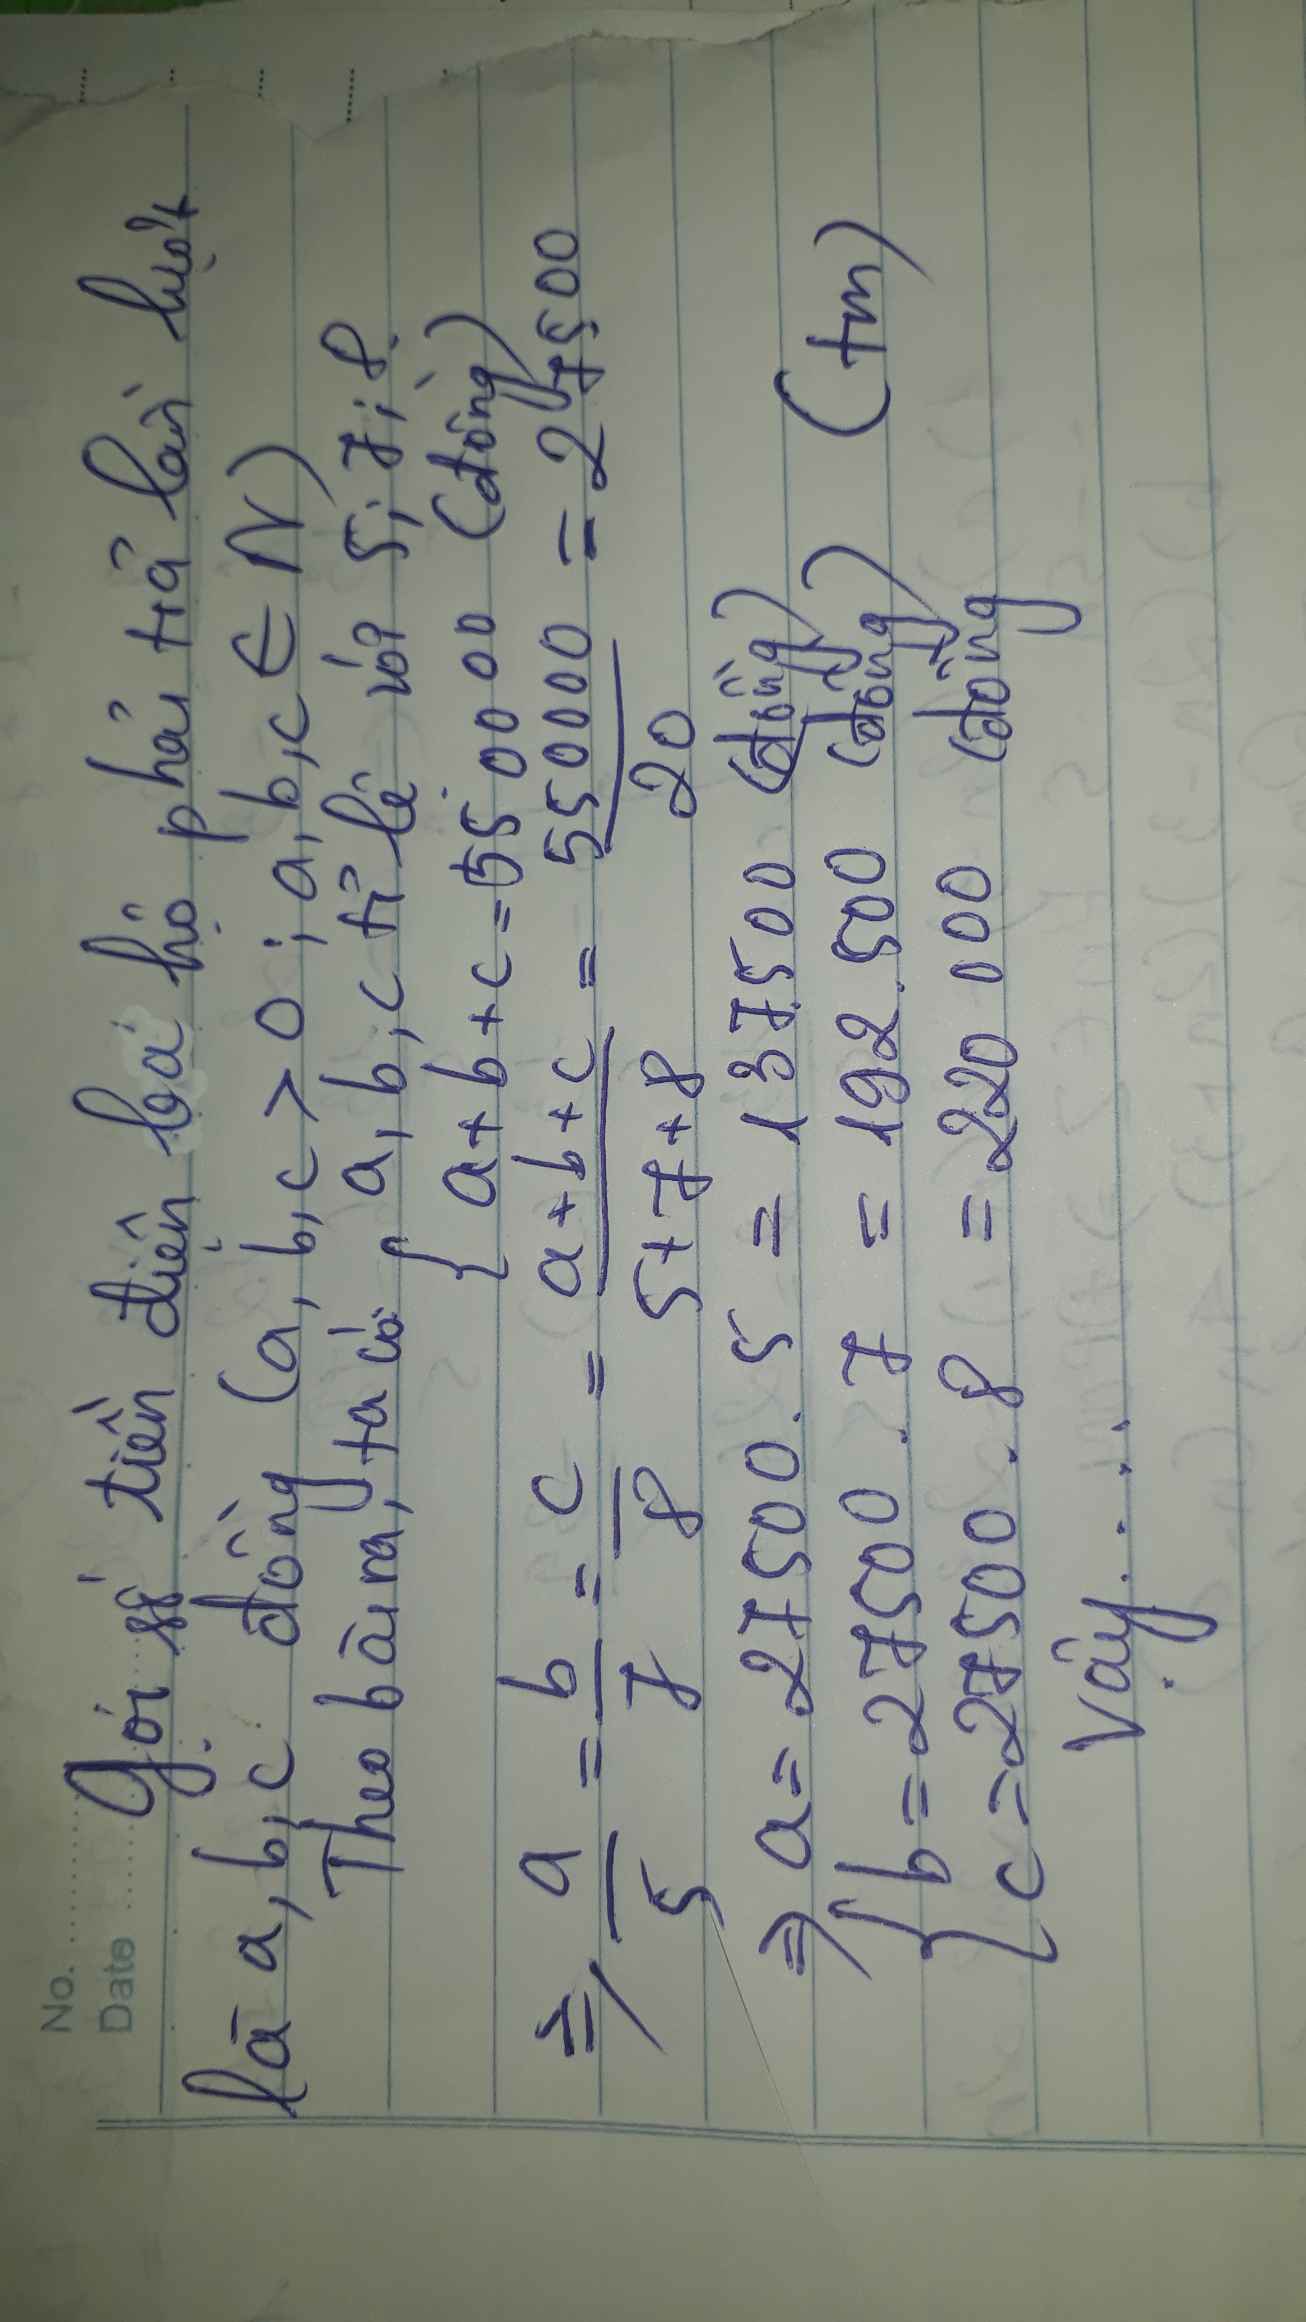 No.
Date
Gọi số tiền điện ba hộ phải trả lần lượt
là a, b, c đồng (a, b, c > 0; a, b, c ∈ N)
Theo bài ra, ta có { a, b, c tỉ lệ với 5; 7; 8.
a + b + c = 550000 (đồng)
=> a/5 = b/7 = c/8 = (a+b+c)/(5+7+8) = 550000/20 = 27500
=> { a = 27500 . 5 = 137500 (đồng)
b = 27500 . 7 = 192.500 (đồng) (tm)
c = 27500 . 8 = 220 000 (đồng
Vậy.....